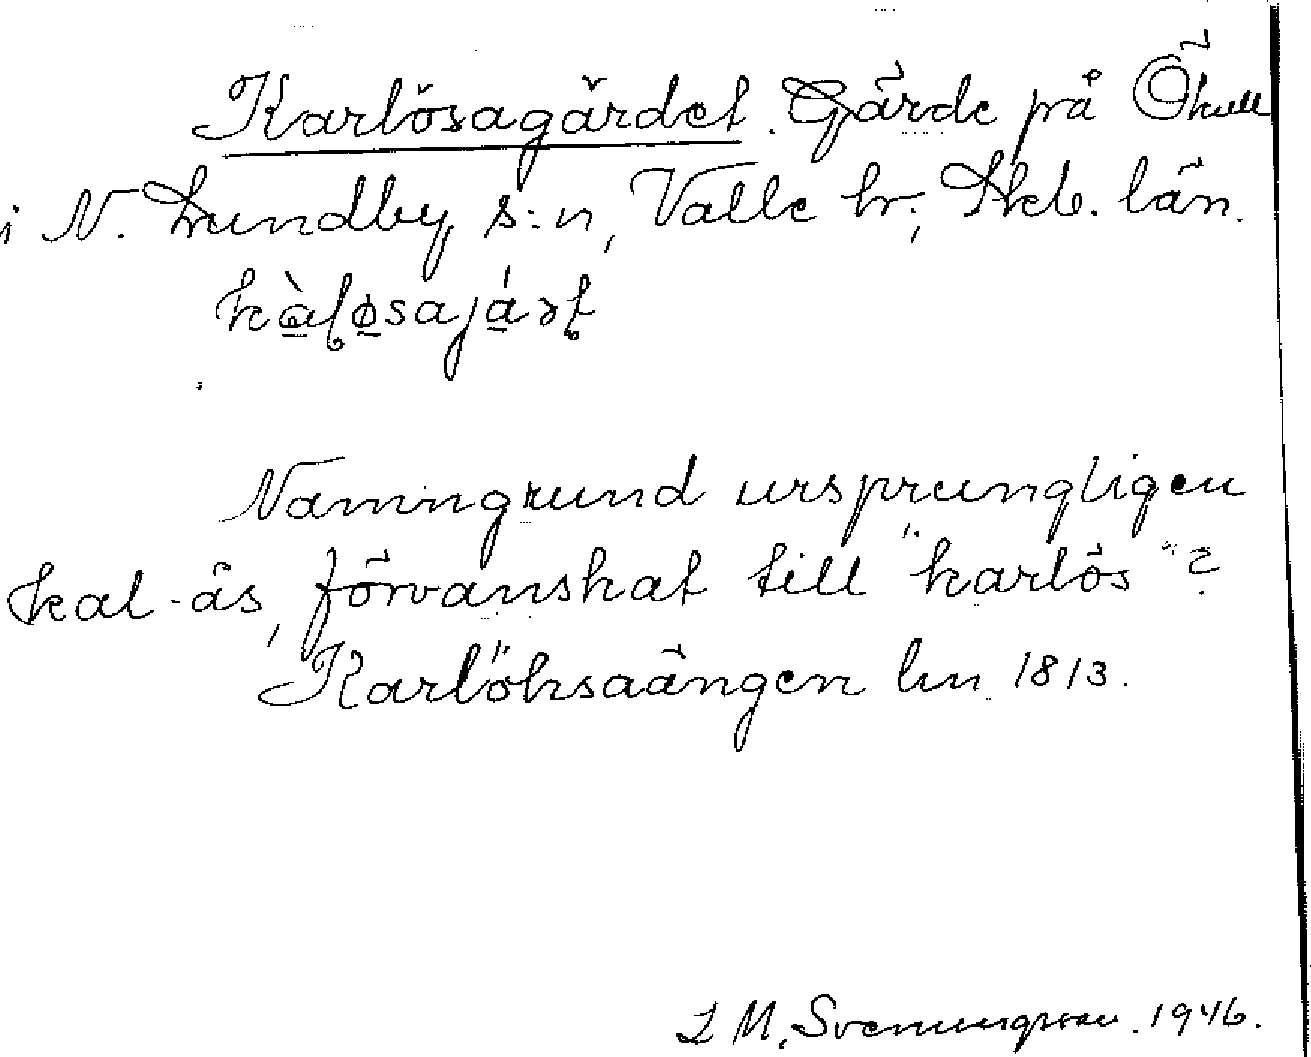 Karlösagärdet. Gärde på Ökull
i N. Lundby s:n, Valle hr; Skb. län.
kàlosajárt
Namngrund ursprungligen
kal-ås, förvanskat till "karlös"?
Karlöhsaängen lm 1813.
L M. Svenungsson. 1946.